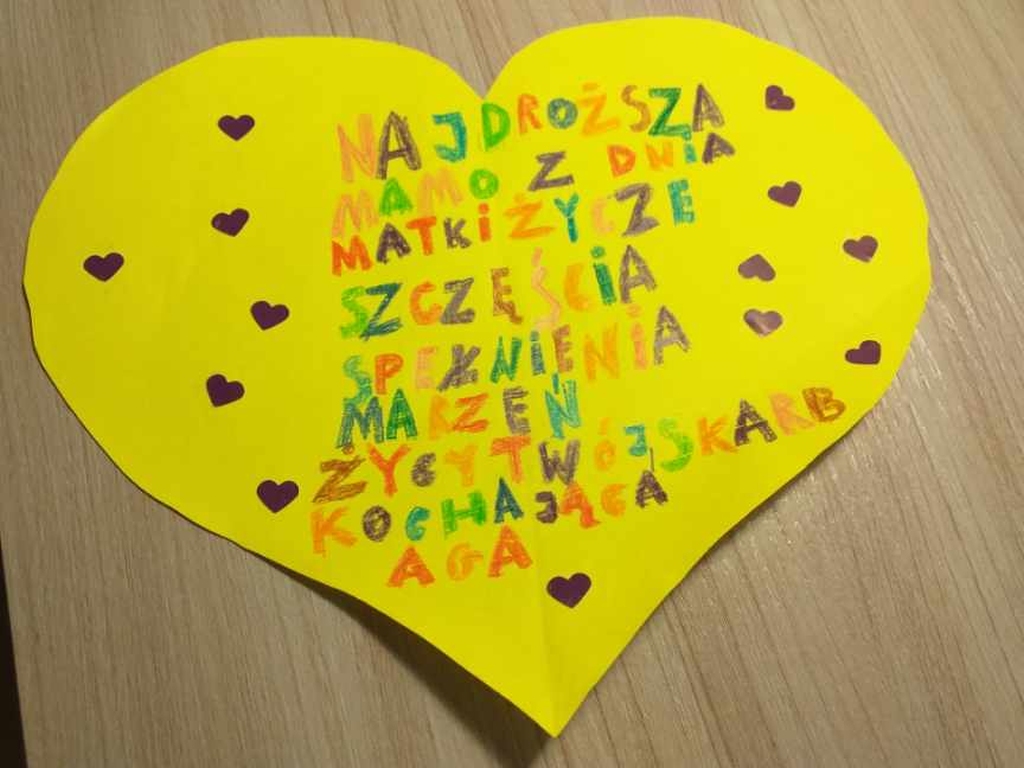 NAJDROŻSZA
MAMO Z DNIA
MATKI ŻYCZE
SZCZĘŚCIA
SPEŁNIENIA
MARZEŃ
ŻYCY TWÓJ SKARB
KOCHAJĄCA
AGA